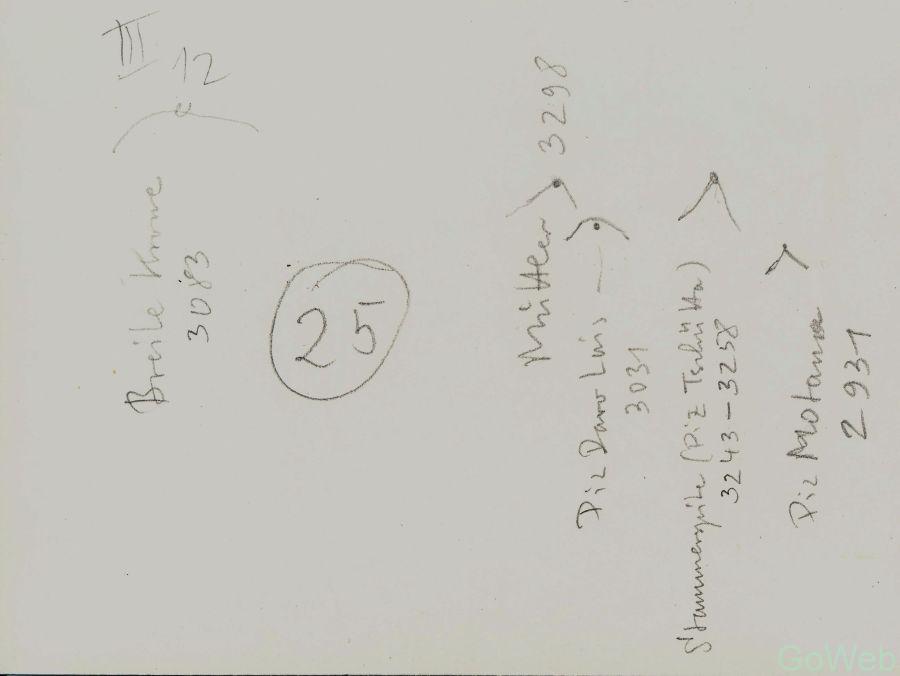 III
12
Breite Krone
3083
25
Muttler 3298
Piz Davo Lais —
3031
Stammerspitze (Piz Tschütta)
3243 – 3258
Piz Motana
2931
GoWeb